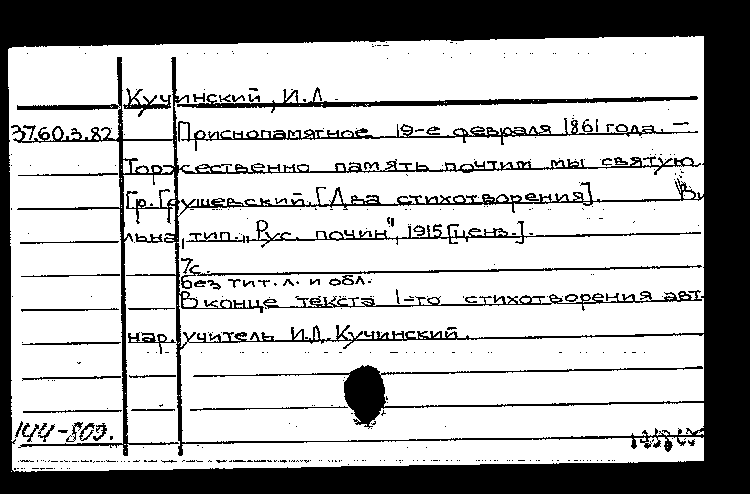 Кучинский, И.Л.
37.60.3.82. Приснопамятное 19-е февраля 1861 года. —
Торжественно память почтим мы святую
Гр. Грушевский. [Два стихотворения]. Ви
льна, тип. „Рус. почин", 1915 [ценз.].
7с.
без тит. л. и обл.
В конце текста 1-го стихотворения авт.
нар. учитель И.Л. Кучинский.
144-809.